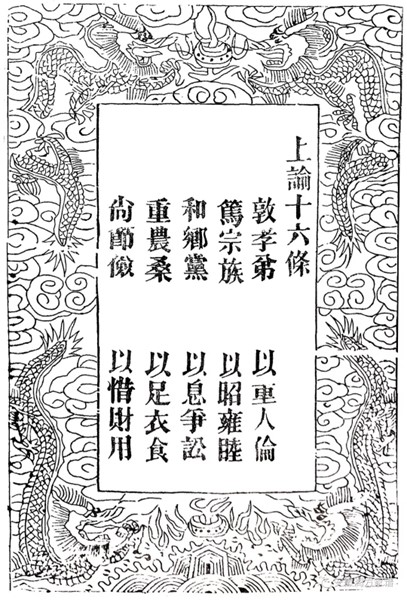 上諭十六條
敦孝弟 以重人倫
篤宗族 以昭雍睦
和鄉黨 以息爭訟
重農桑 以足衣食
尚節儉 以惜財用